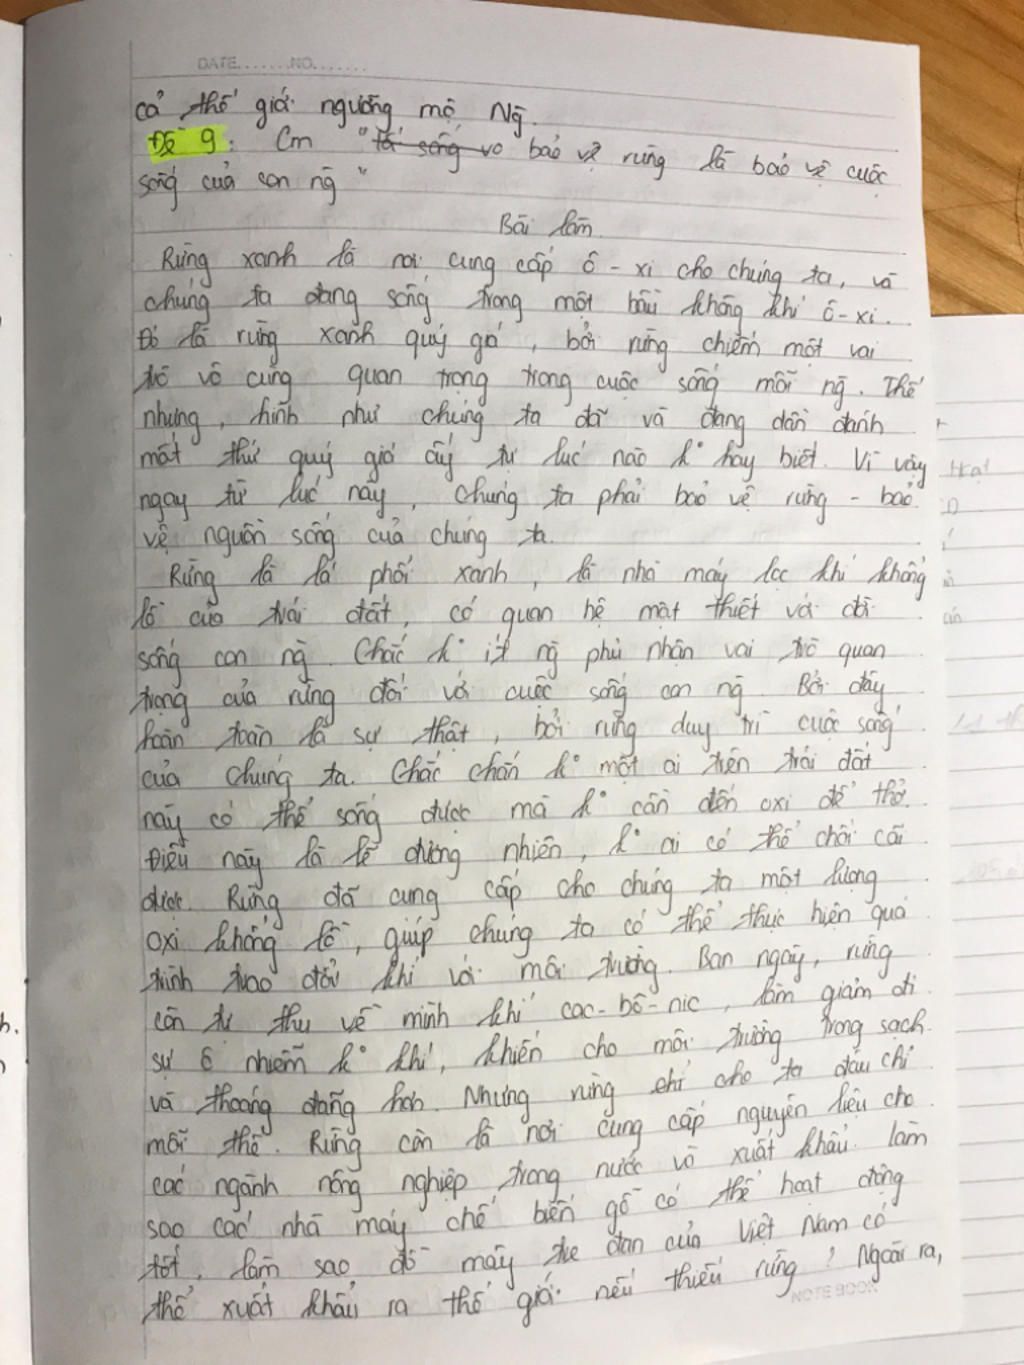 DATE.......NO.......
cả thế giới ngưỡng mộ Ng̃.
Đề 9: Cm "tá sống vo bảo vệ rừng là bảo vệ cuộc
sống của con ng̃"
Bài làm
Rừng xanh là nơi cung cấp ô-xi cho chúng ta, và
chúng ta đang sống trong một bầu không khí ô-xi.
Đó là rừng xanh quý giá, bởi rừng chiếm một vai
trò vô cùng quan trọng trong cuộc sống mỗi ng̃. Thế
nhưng, hình như chúng ta đã và đang dần đánh
mất thứ quý giá ấy tự lúc nào k° hay biết. Vì vậy
ngay từ lúc này, chúng ta phải bảo vệ rừng - bảo
vệ nguồn sống của chúng ta.
Rừng là lá phổi xanh, là nhà máy lọc khí khổng
lồ của trái đất, có quan hệ mật thiết với đời
sống con ng̃. Chắc k° ít ng̃ phủ nhận vai trò quan
trọng của rừng đối với cuộc sống con ng̃. Bởi đây
hoàn toàn là sự thật, bởi rừng duy trì cuộc sống
của chúng ta. Chắc chắn k° một ai trên trái đất
này có thể sống được mà k° cần đến oxi để thở.
Điều này là lẽ đương nhiên, k° ai có thể chối cãi
được. Rừng đã cung cấp cho chúng ta một lượng
oxi khổng lồ, giúp chúng ta có thể thực hiện quá
trình trao đổi khí với môi trường. Ban ngày, rừng
còn tự thu về mình khí cac-bô-nic, làm giảm đi
sự ô nhiễm k° khí, khiến cho môi trường trong sạch
và thoáng đãng hơn. Nhưng rừng chỉ cho ta đâu chỉ
mỗi thế. Rừng còn là nơi cung cấp nguyên liệu cho
các ngành nông nghiệp trong nước và xuất khẩu. làm
sao các nhà máy chế biến gỗ có thể hoạt động
tốt, làm sao đồ mây tre đan của Việt Nam có
thể xuất khẩu ra thế giới nếu thiếu rừng? Ngoài ra,
NOTE BOOK